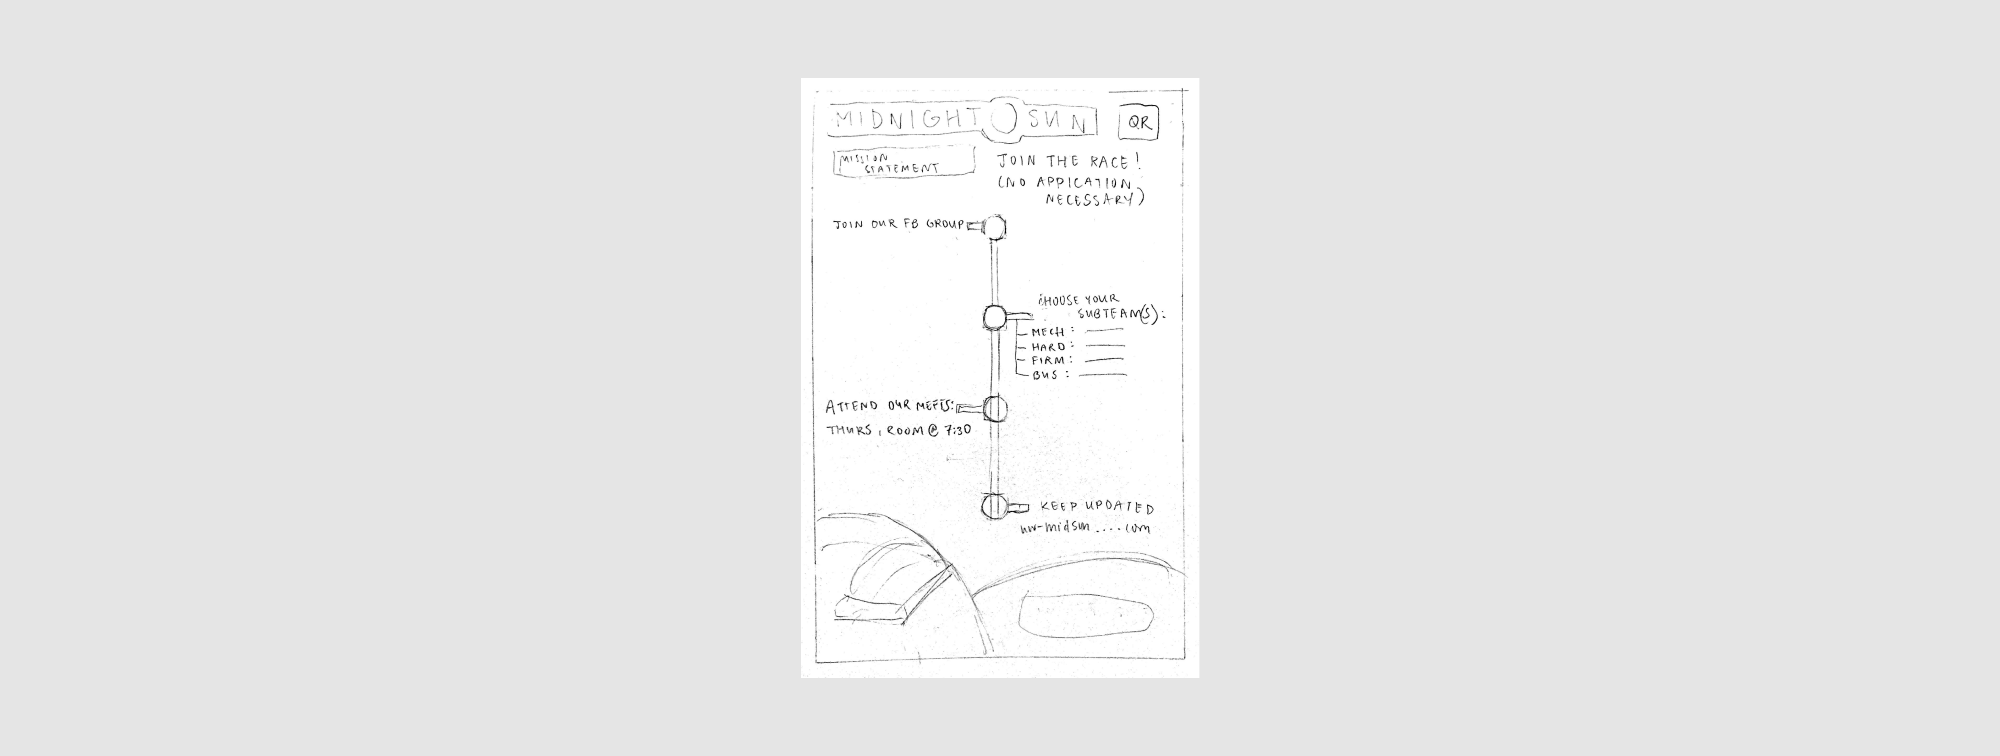 MIDNIGHT SUN
QR
MISSION
STATEMENT
JOIN THE RACE!
(NO APPICATION
NECESSARY)
JOIN OUR FB GROUP
CHOOSE YOUR
SUBTEAM(S):
MECH:
HARD:
FIRM:
BUS:
ATTEND OUR MEETS:
THURS, ROOM @ 7:30
KEEP UPDATED
uw-midsun....com